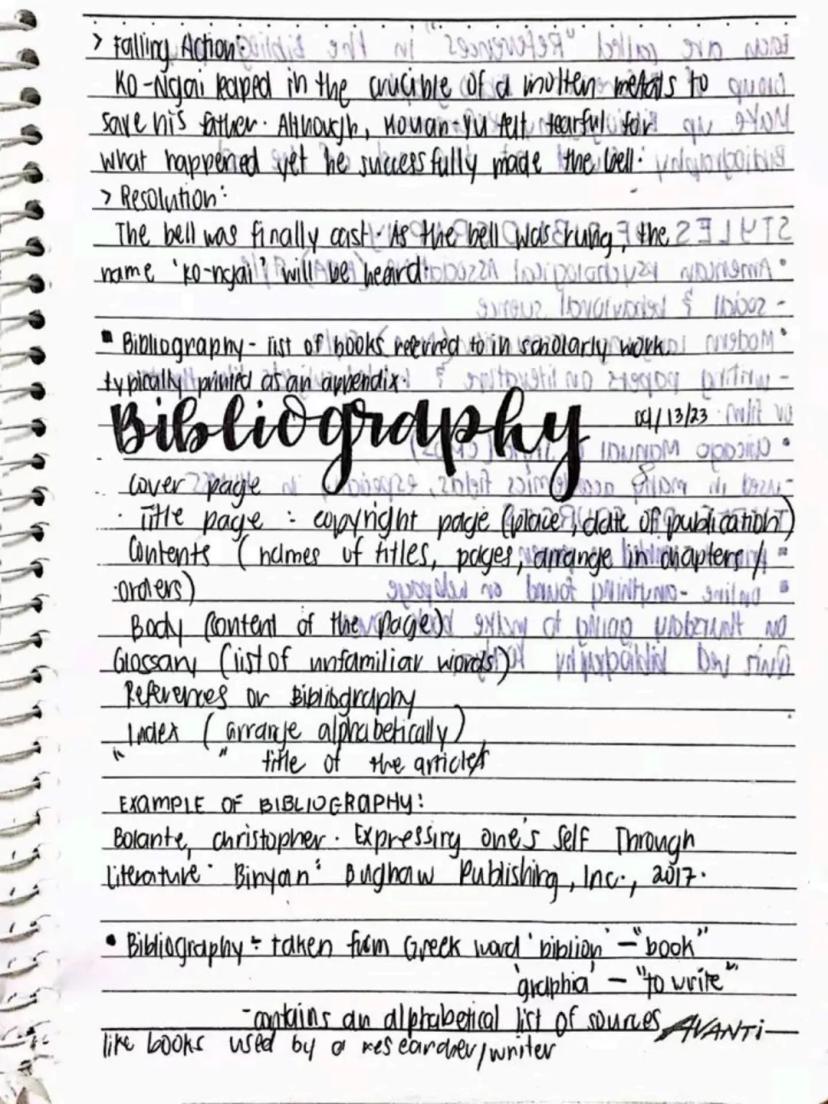 > Falling Action:
Ko-Ngai leaped in the crucible of a molten metals to
save his father. Although, Kouan-Yu felt fearful for
what happened yet he successfully made the bell.
> Resolution:
The bell was finally cast. As the bell was rung, the
name 'ko-ngai' will be heard.
▪ Bibliography - list of books referred to in scholarly work.
typically printed as an appendix.
Bibliography 09/13/23
Cover page
· Title page : copyright page (place, date of publication)
Contents (names of titles, pages, arrange in chapters /
orders)
Body (content of the page)
Glossary (list of unfamiliar words)
References or Bibliography
Index (arrange alphabetically)
" " title of the articles
EXAMPLE OF BIBLIOGRAPHY:
Bolante, Christopher. Expressing one's Self Through
Literature. Binyan: Bughaw Publishing, Inc., 2017.
• Bibliography : taken from Greek word 'biblion' - "book"
'graphia' - "to write"
- contains an alphabetical list of sources AVANTI
like books used by a researcher/writer